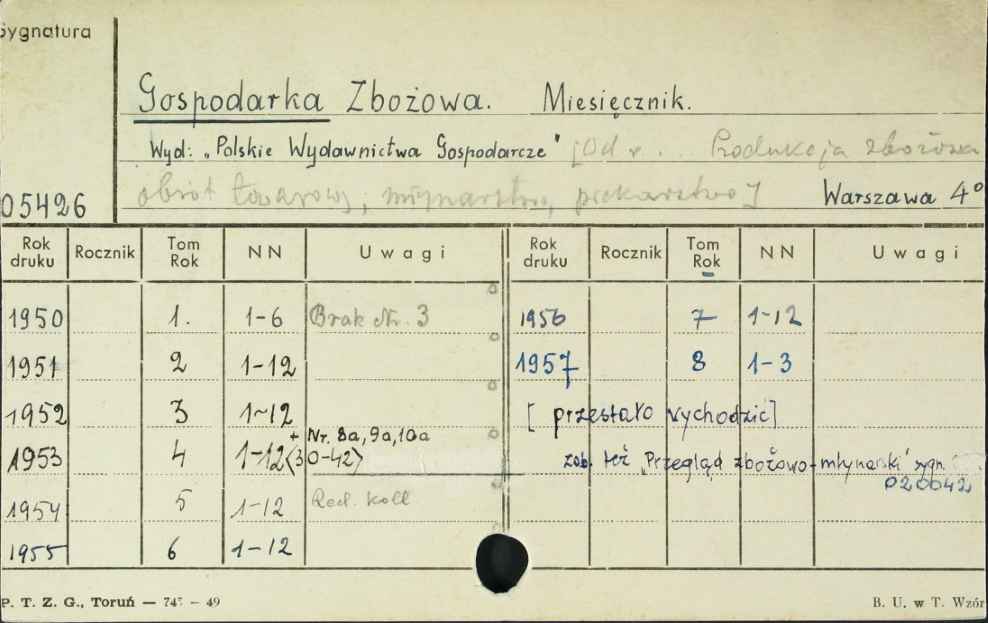 Sygnatura
Gospodarka Zbożowa. Miesięcznik.
Wyd: „Polskie Wydawnictwa Gospodarcze" [Od r. ... Produkcja zbożowa
obrót towarowy, młynarstwo, piekarstwo] Warszawa 4°
05426
Rok druku Rocznik Tom Rok NN Uwagi Rok druku Rocznik Tom Rok NN Uwagi
1950 1. 1-6 Brak Nr. 3 1956 7 1-12
1951 2 1-12 1957 8 1-3
1952 3 1-12 [przestało wychodzić]
+ Nr. 8a, 9a, 10a
1953 4 1-12 <30-42> zob. też „Przegląd zbożowo-młynarski" sygn.
020042
1954 5 1-12 Red. koll
1955 6 1-12
P. T. Z. G., Toruń — 49
B. U. w T. Wzór